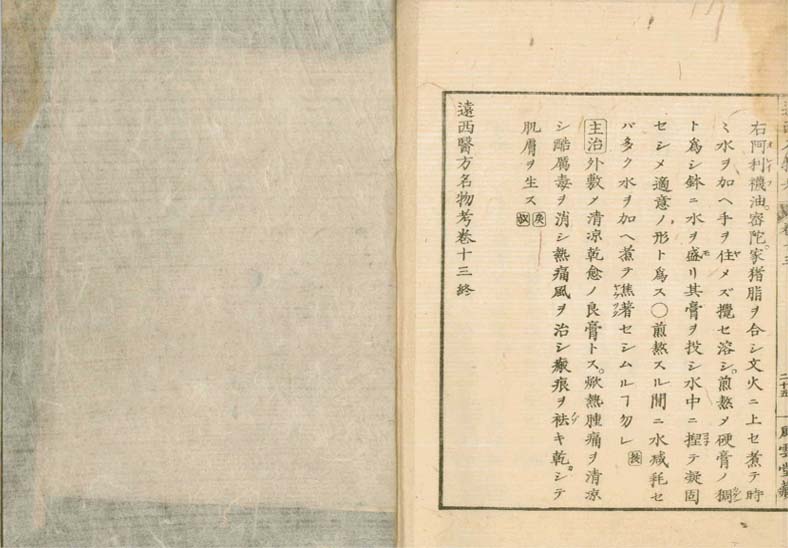 右阿利襪油。密陀。家猪脂ヲ合シ文火ニ上セ煮テ時
ミ水ヲ加ヘ手ヲ住メズ攪セ溶シ。煎熬メ硬膏ノ稠
ト爲シ鉢ニ水ヲ盛リ其膏ヲ投シ水中ニ捏テ凝固
セシメ適意ノ形ト爲ス〇煎熬スル間ニ水減耗セ
バ多ク水ヲ加ヘ煮テ焦著セシムルヿ勿レ 扶
主治 外敷メ清凉乾愈ノ良膏トス。焮熱腫痛ヲ清凉
シ酷厲毒ヲ消シ熱痛風ヲ治シ瘢痕ヲ祛キ乾。シテ
肌膚ヲ生ス
遠西醫方名物考卷十三終
二十五 風雲堂藏